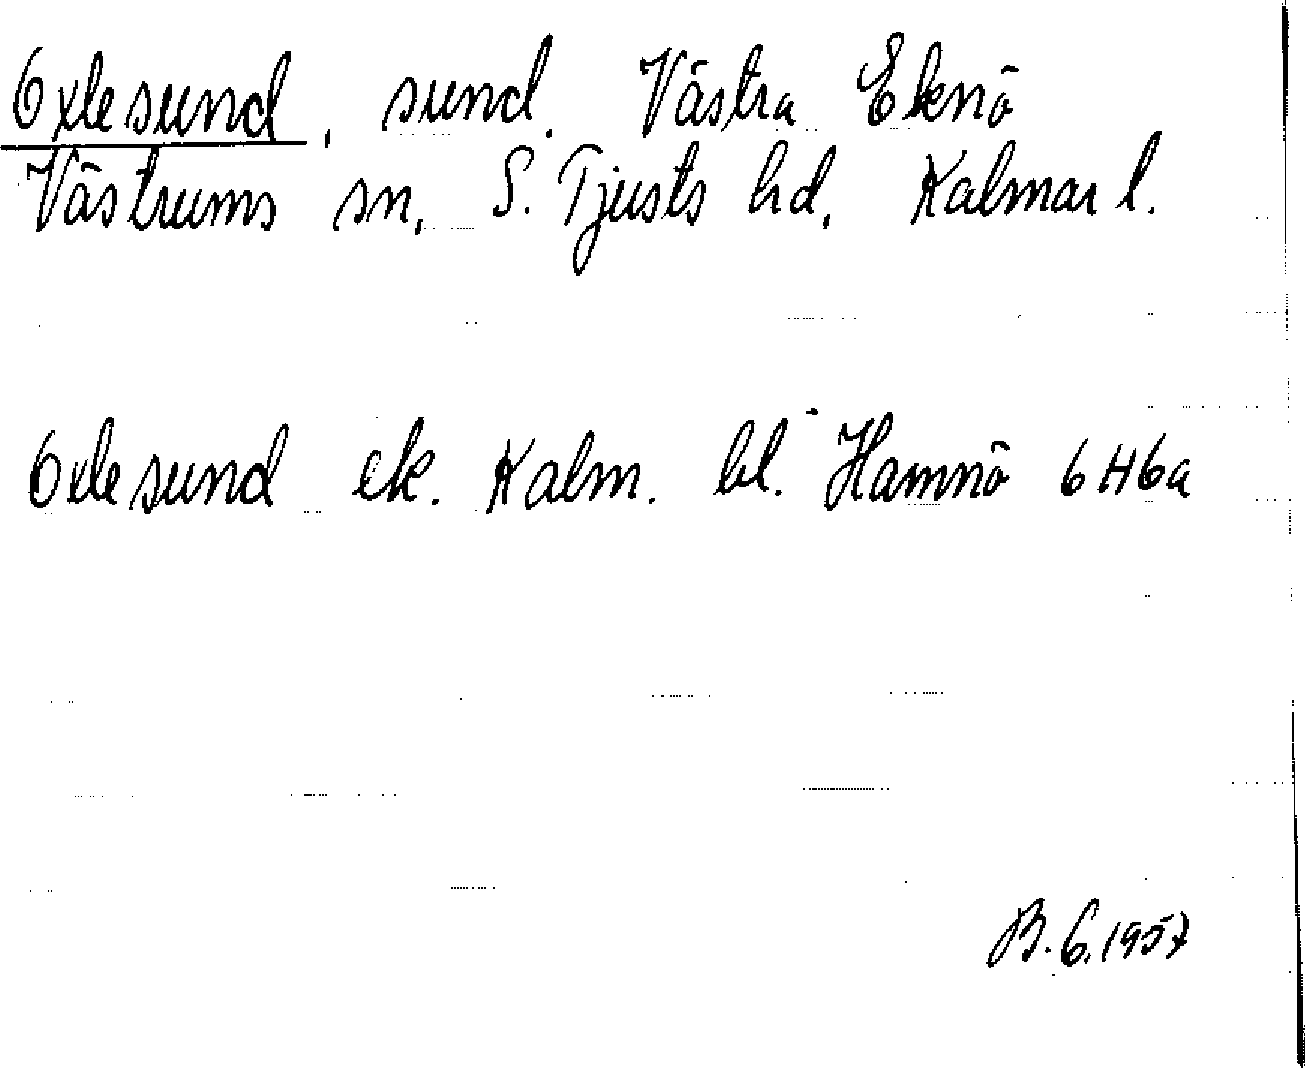 Oxlesund, sund. Västra Eknö
Västrums sn, S. Tjusts hd, Kalmar l.
Oxlesund ek. Kalm. bl. Hamnö 6H6a
B.G. 1957